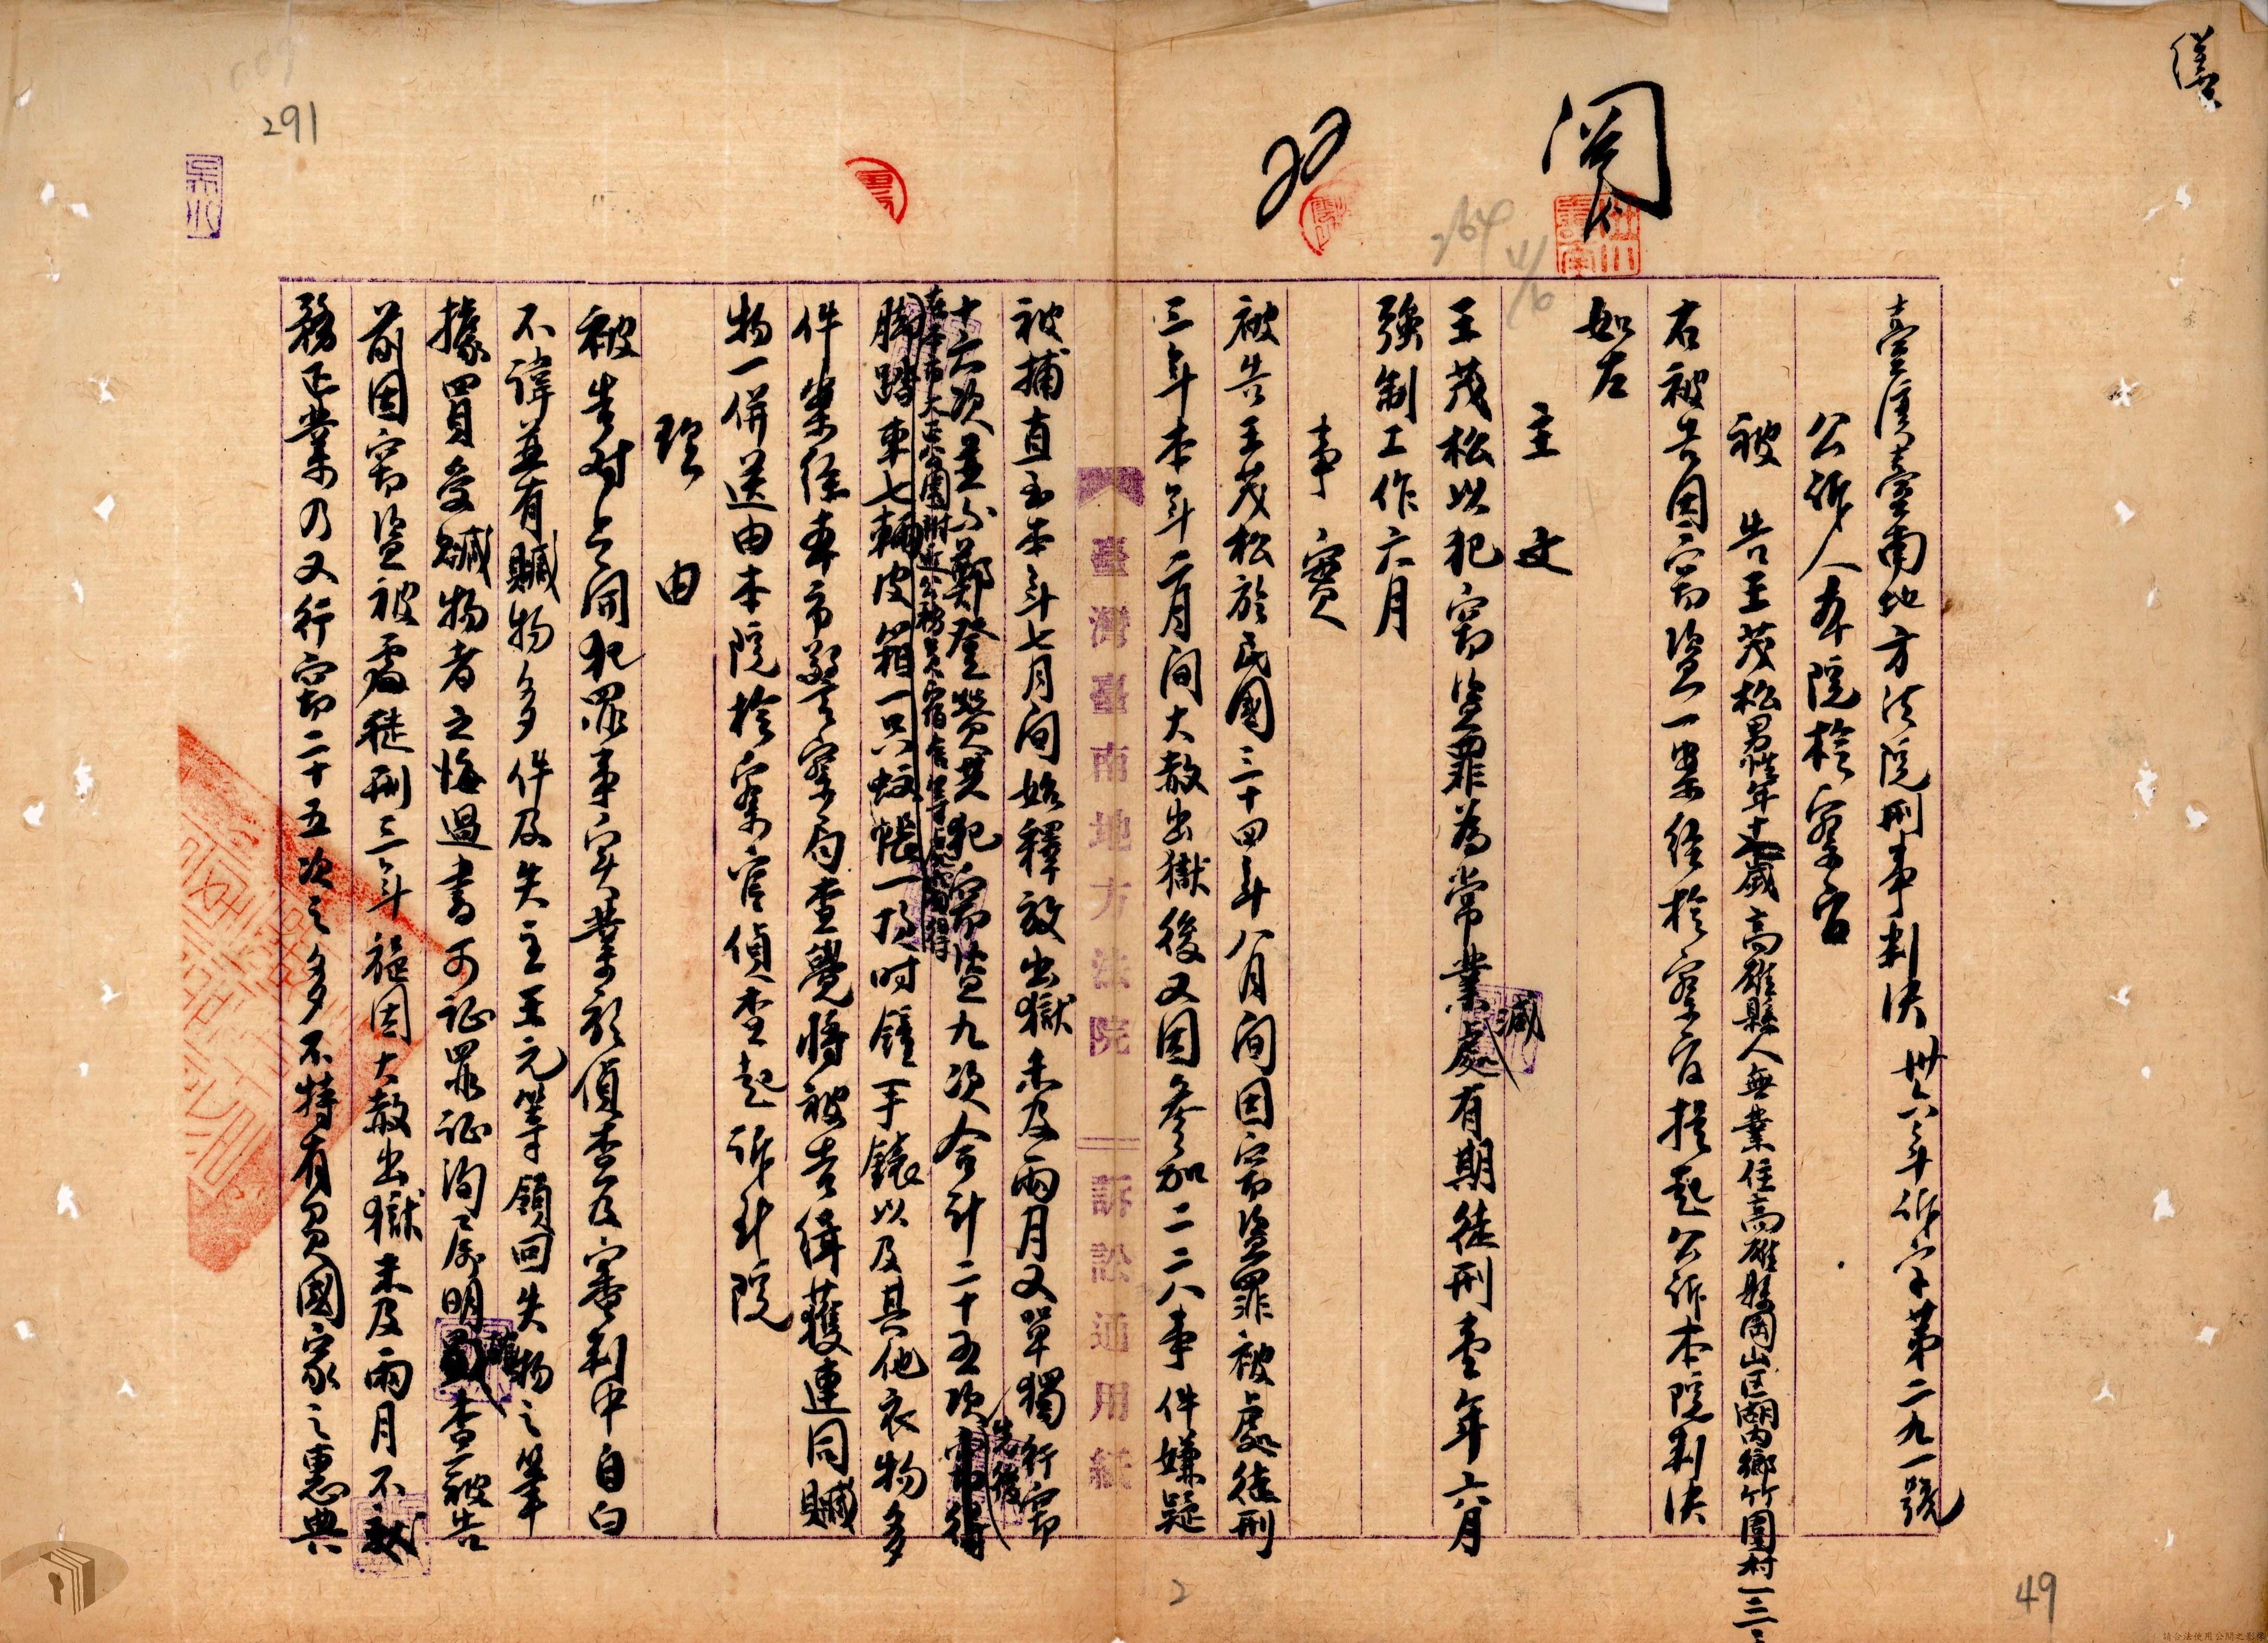 繕
閱
291
臺灣臺南地方法院刑事判決 卅六年訴字第二九一號
公訴人本院檢察官
被告王茂松男性年歲高雄縣人無業住高雄縣岡山区湖內鄉竹圍村一三
右被告因竊盜一案経檢察官提起公訴本院判決
如左
主文
王茂松以犯竊盜罪為常業減處有期徒刑壹年六月
強制工作六月
事實
被告王茂松於民國三十四年八月间因竊盜罪被處徒刑
三年本年二月间大赦出獄後又因參加二二八事件嫌疑
臺灣臺南地方法院 訴訟通用紙
被捕直至本年七月间始釋放出獄未及兩月又單獨行竊
十六次並與鄭登贊共犯竊盜九次合計二十五次先後竊得
在本市大正公園附近公務員宿舍等處竊得
脚踏車七輛皮箱一只蚊帳一頂时鐘手錶以及其他衣物多
件案経本市警察局查覺將被告緝獲連同贓
物一併送由本院檢察官偵查起訴到院
理由
被告对上開犯罪事实業於偵查及審判中自白
不諱並有贓物多件及失主王元等領回失物之筆
據買受贓物者之悔過書可证罪证洵屬明確查被告
前因竊盜被處徒刑三年褔因大赦出獄未及兩月不
務正業乃又行竊二十五次之多不特有負國家之惠典
2
49
請合法使用公開之影像